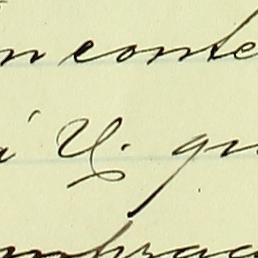 n conte
á V. qu
mbrac